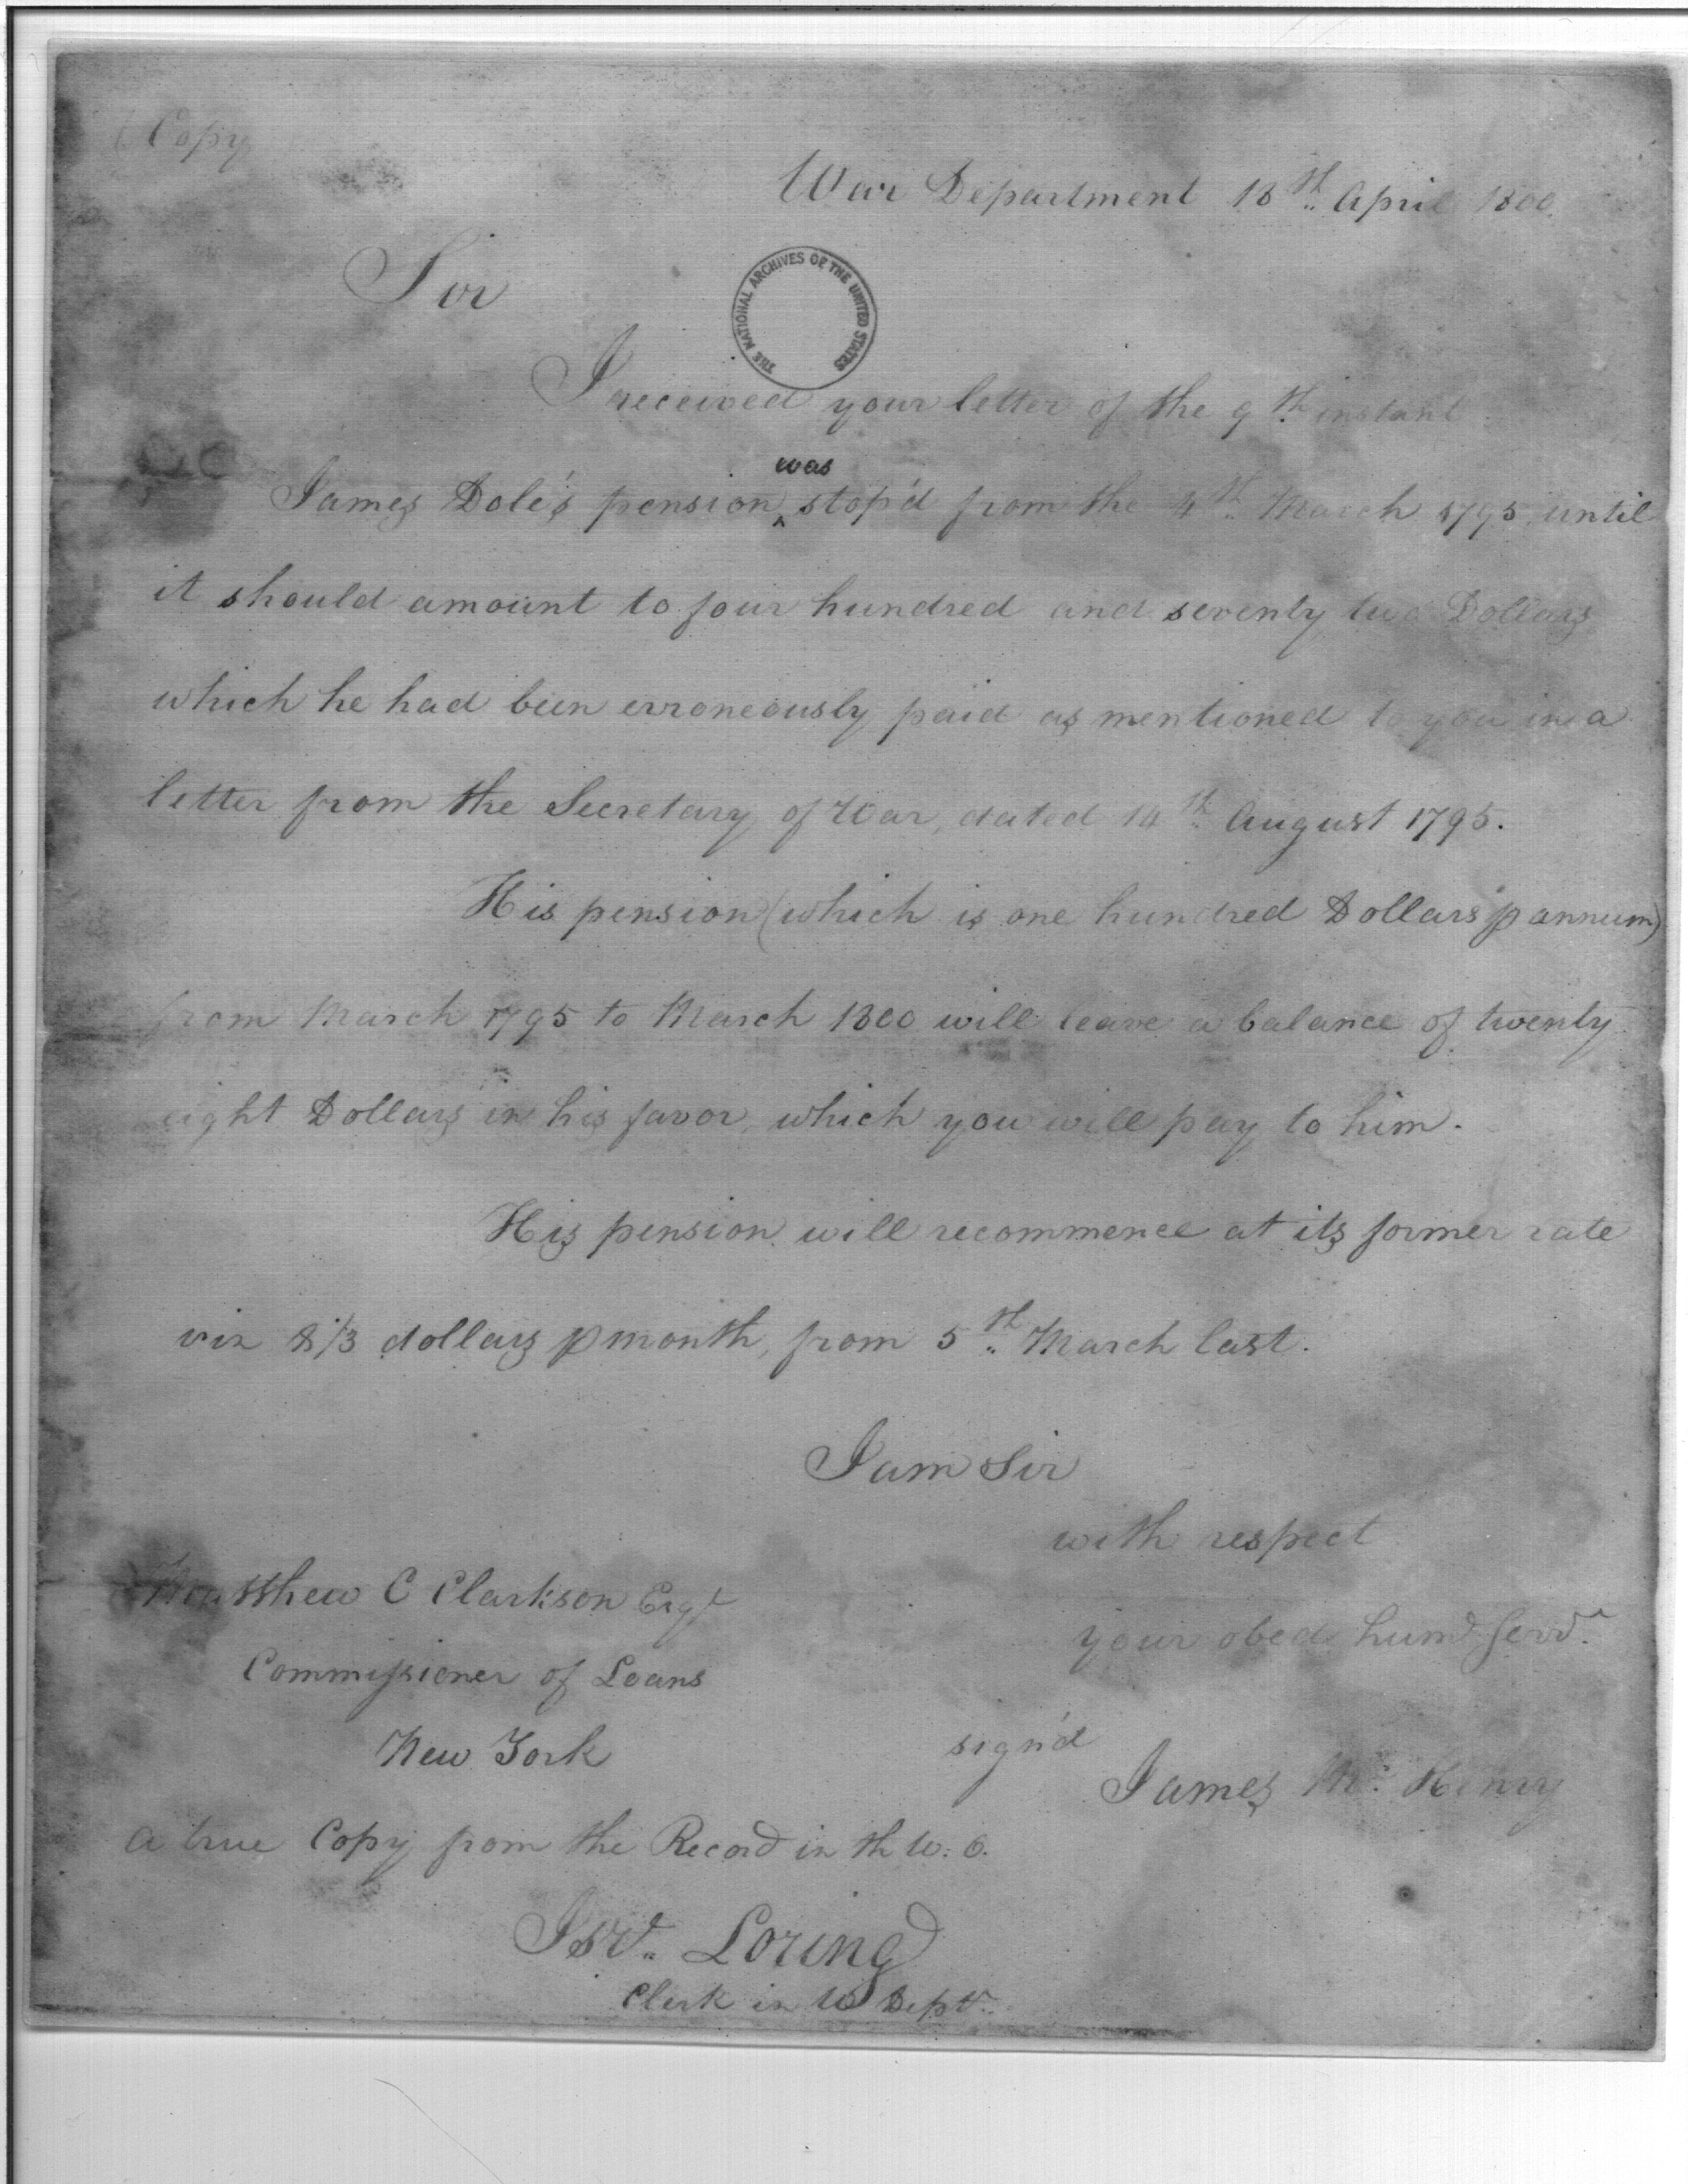 (Copy
War Department 18th April 1800.
Sir
THE NATIONAL ARCHIVES OF THE UNITED STATES
I received your letter of the 9th instant
was
James Dole's pension ^ stop'd from the 4th March 1795 until
it should amount to four hundred and seventy two Dollars
which he had been erroneously paid as mentioned to you in a
letter from the Secretary of War, dated 14th August 1795.
His pension (which is one hundred Dollars p annum)
from March 1795 to March 1800 will leave a balance of twenty
eight Dollars in his favor, which you will pay to him.
His pension will recommence at its former rate
viz 8 1/3 dollars p month, from 5th March last.
I am Sir
with respect
Matthew C Clarkson Esqr
your obed humb Servt
Commissioner of Loans
New York
sign'd
James Mc Henry
a true Copy from the Record in th W. O.
Isrl. Loring
Clerk in W Dept.